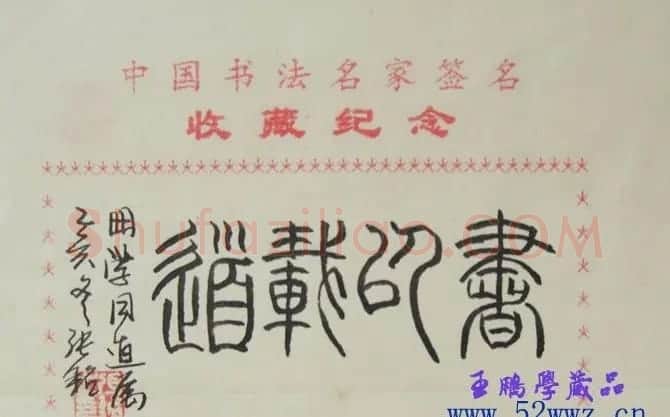 中国书法名家签名
收藏纪念
書以載道
田学同道属
乙亥冬张颔
Shufaziliao.COM
王鵬學藏品
www.52wwz.cn